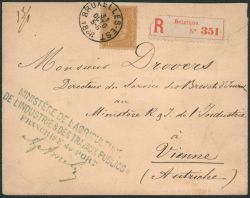 BRUXELLES-EST
Belgique.
N° 351
Monsieur Drovers
Directeur du Service des Brevets d'
au
Ministère R. de l'Industrie
à
Vienne
(Autriche)
MINISTÈRE DE L'AGRICULTURE
DE L'INDUSTRIE & DES TRAVAUX PUBLICS
FRANCHISE de PORT